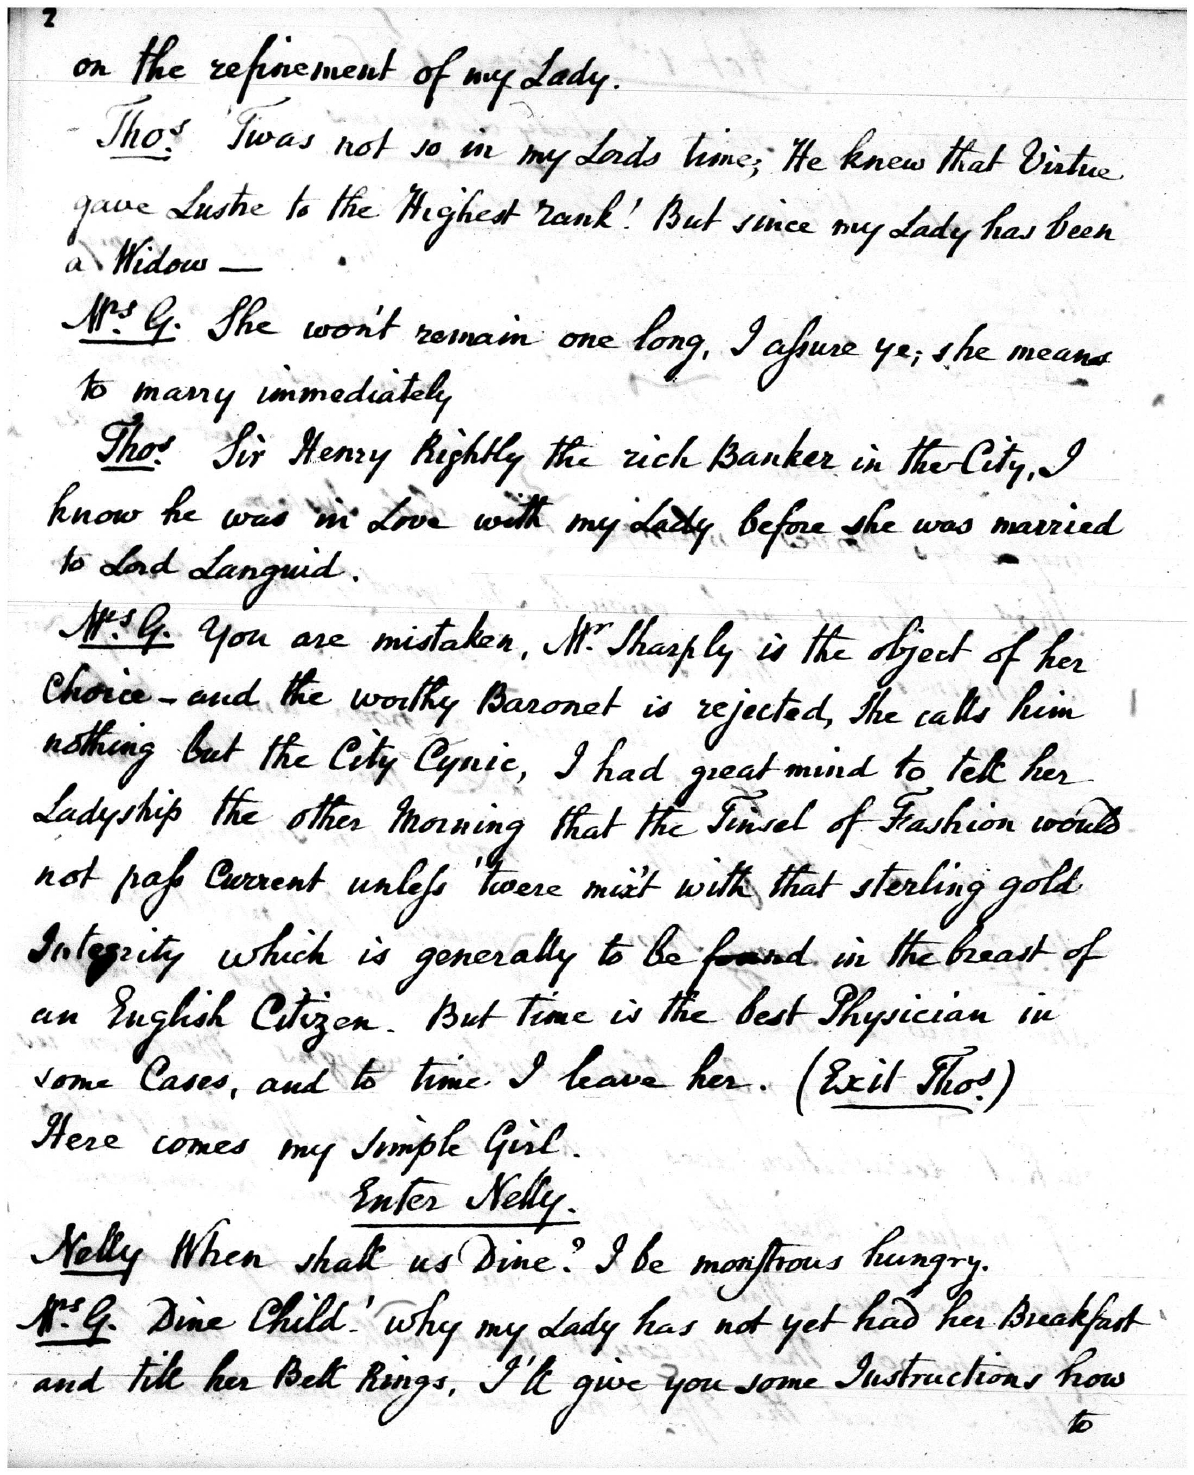 2
on the refinement of my Lady.
Thos. 'Twas not so in my Lords time; He knew that Virtue
gave Lustre to the Highest rank! But since my Lady has been
a Widow —
Mrs. G. She won't remain one long, I aſsure ye; she means
to marry immediately
Thos. Sir Henry Rightly the rich Banker in the City, I
know he was in Love with my Lady before she was married
to Lord Languid.
Mrs. G. You are mistaken, Mr. Sharply is the object of her
Choice – and the worthy Baronet is rejected, She calls him
nothing but the City Cynic, I had great mind to tell her
Ladyship the other Morning that the Tinsel of Fashion would
not paſs Current unleſs 'twere mix't with that sterling gold
Integrity which is generally to be found in the breast of
an English Citizen. But time is the best Physician in
some Cases, and to time I leave her. (Exit Thos.)
Here comes my Simple Girl.
Enter Nelly.
Nelly When shall us Dine? I be monſtrous hungry.
Mrs. G. Dine Child! why my Lady has not yet had her Breakfast
and till her Bell Rings, I'll give you some Instructions how
to